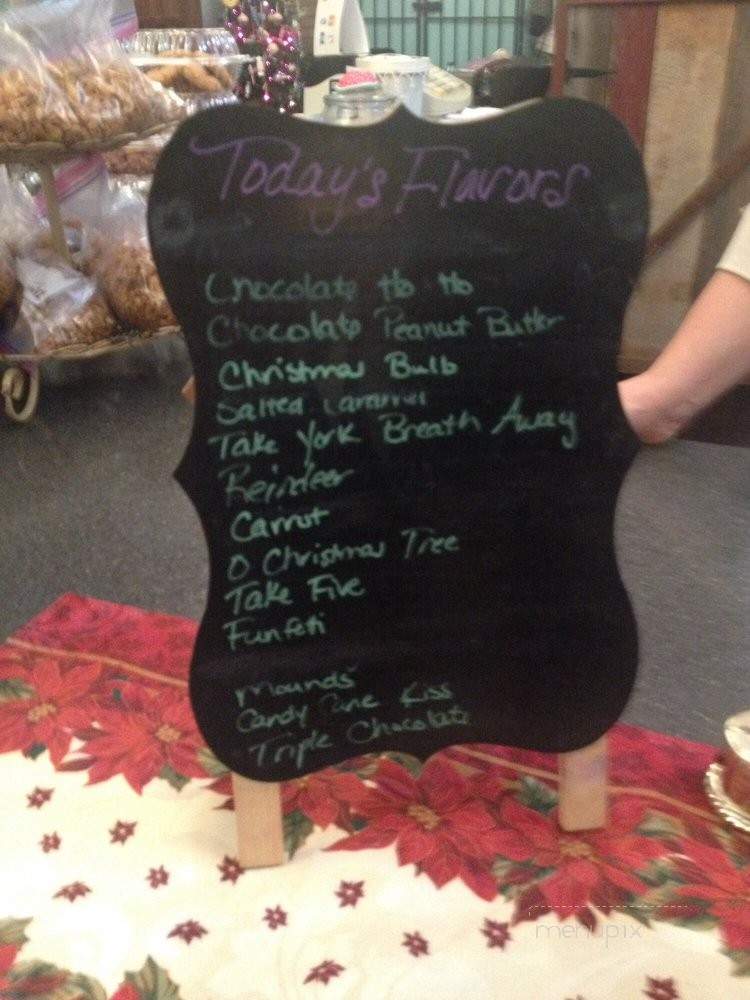 Today's Flavors
Chocolate Ho Ho
Chocolate Peanut Butter
Christmas Bulb
Salted Caramel
Take York Breath Away
Reindeer
Carrot
O Christmas Tree
Take Five
Funfeti
Mounds
Candy Cane Kiss
Triple Chocolate
menupix